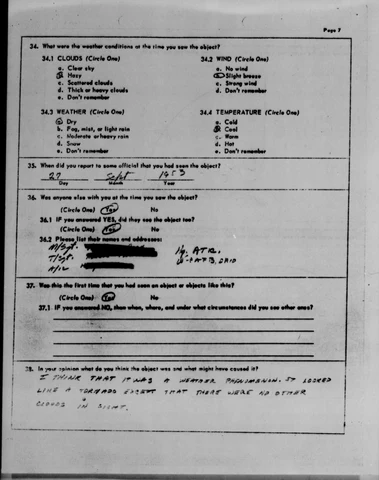 Page 7
34. What were the weather conditions at the time you saw the object?
34.1 CLOUDS (Circle One)
a. Clear sky
b. Hazy
c. Scattered clouds
d. Thick or heavy clouds
e. Don't remember
34.2 WIND (Circle One)
a. No wind
b. Slight breeze
c. Strong wind
d. Don't remember
34.3 WEATHER (Circle One)
a. Dry
b. Fog, mist, or light rain
c. Moderate or heavy rain
d. Snow
e. Don't remember
34.4 TEMPERATURE (Circle One)
a. Cold
b. Cool
c. Warm
d. Hot
e. Don't remember
35. When did you report to some official that you had seen the object?
27 Sept 1953
Day Month Year
36. Was anyone else with you at the time you saw the object?
(Circle One) Yes No
36.1 IF you answered YES, did they see the object too?
(Circle One) Yes No
36.2 Please list their names and addresses:
M/Sgt.
T/Sgt.
A/1C
37. Was this the first time that you had seen an object or objects like this?
(Circle One) Yes No
37.1 IF you answered NO, then when, where, and under what circumstances did you see other ones?
38. In your opinion what do you think the object was and what might have caused it?
I THINK THAT IT WAS A WEATHER PHENOMENON. IT LOOKED
LIKE A TORNADO EXCEPT THAT THERE WERE NO OTHER
CLOUDS IN SIGHT.